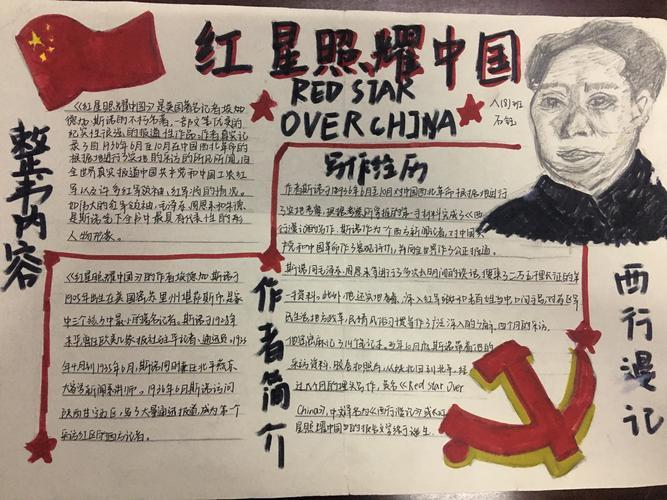 红星照耀中国
RED STAR
OVER CHINA
八(8)班
整本内容
《红星照耀中国》是美国著名记者埃德
德加·斯诺的不朽名著,一部文笔优美的
纪实性很强的报道性作品。作者真实记
录了自1936年6月至10月在中国西北革命的
根据地进行了实地的采访的所见所闻,向
全世界真实报道中国共产党和中国工农红
军以及许多红军领袖、红军将的情况。
是斯诺笔下分中最具有代表性的形
人物形象。
写作经历
作者斯诺于1936年6月至10月对中国西北革命根据地进行
了实地考察,根据考察所掌握的第一手材料完成了《西
行漫记》的写作。斯诺作为一个西方新闻记者,对中国共
产党和中国革命作了客观评价,并向全世界作了公正报道。
斯诺同毛泽东、周恩来等进行了多次长时间的谈话,搜集了二万五千里长征的第
一手资料。此外,他还实地考察,深入红军战士和老百姓当中,口问手写,对苏区军
民生活,地方政革,民情风俗习惯等作了广泛深入的调查。四个月的采访,
他密密麻麻记了14个笔记本。当年10月底,斯诺带着他的
采访资料、胶卷和照片,从陕北回到北平,经
过几个月的埋头写作,英名《Red Star Over
China》,中文译名为《西行漫记》或《红
星照耀中国》的报告文学终于诞生。
作者简介
《红星照耀中国》的作者埃德加·斯诺于
1905年出生在美国密苏里州堪萨斯市,是家
中三个孩子中最小的著名记者。斯诺于1928年
来华,曾任欧美几家报社驻华记者、通讯员。1933
年4月到1935年6月,斯诺同时兼任北平燕京
大学新闻系讲师。1936年6月斯诺访问
陕甘宁边区,写了大量通讯报道,成为第一个
采访红区的西方记者。
西行漫记